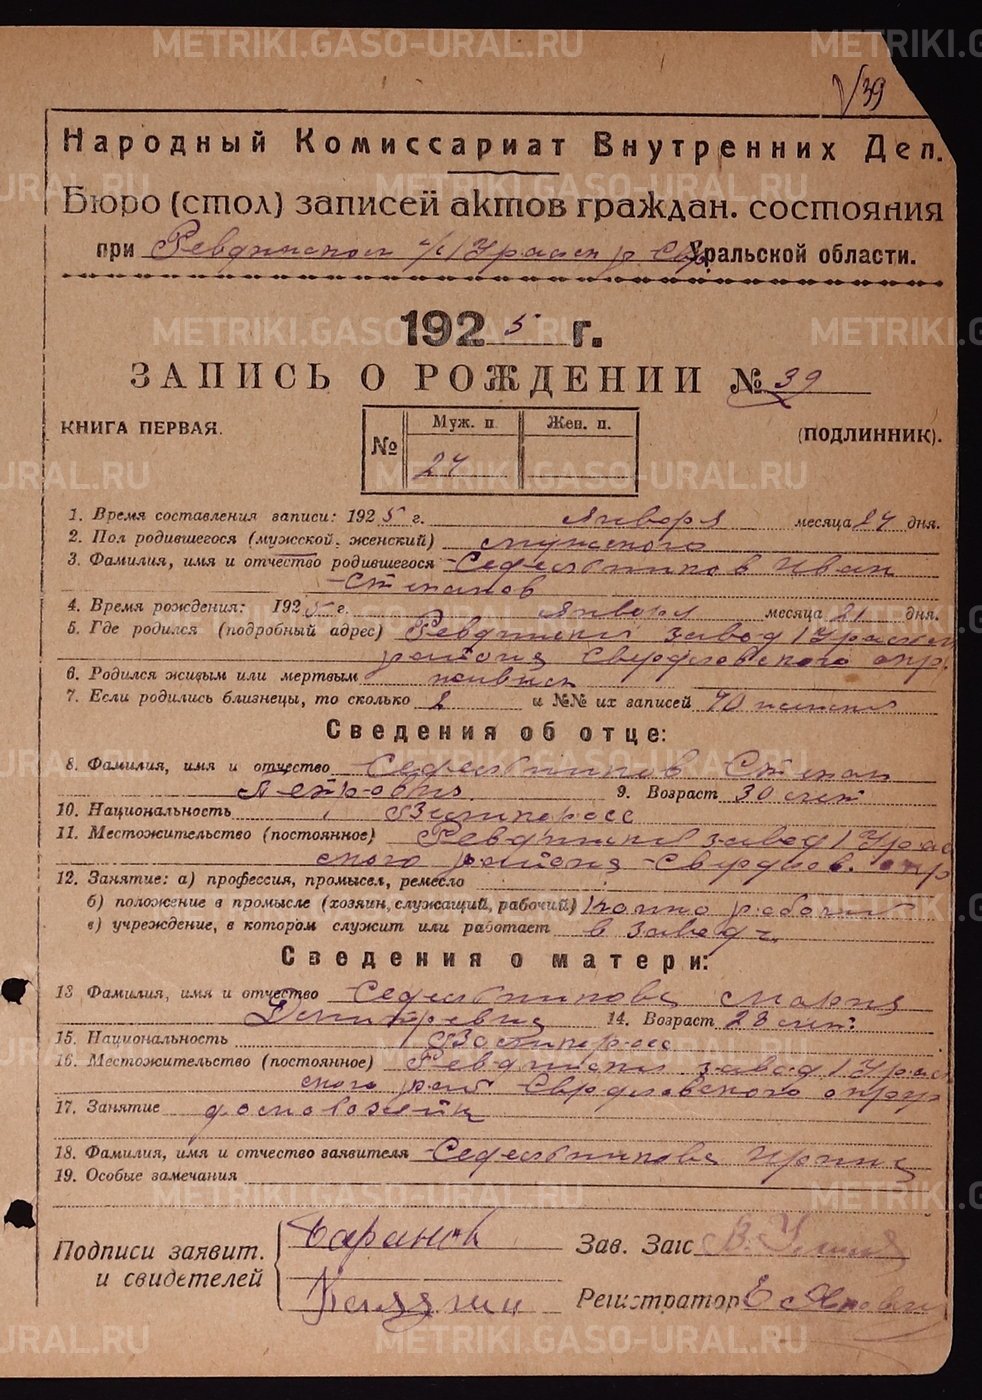 METRIKI.GASO-URAL.RU
39
Народный Комиссариат Внутренних Дел.
Бюро (стол) записей актов граждан. состояния
при Ревдинском Уральской области.
1925 г.
ЗАПИСЬ О РОЖДЕНИИ № 39
КНИГА ПЕРВАЯ.
(ПОДЛИННИК).
№ Муж. п. Жен. п.
24
1. Время составления записи: 1925 г. Января месяца 24 дня.
2. Пол родившегося (мужской, женский) мужского
3. Фамилия, имя и отчество родившегося Седельников Иван
Степанов
4. Время рождения: 1925 г. Января месяца 21 дня.
5. Где родился (подробный адрес) Ревдинский завод
района Свердловского окр.
6. Родился живым или мертвым живым
7. Если родились близнецы, то сколько 2 и №№ их записей 40
Сведения об отце:
8. Фамилия, имя и отчество Седельников Степан
Петрович 9. Возраст 30 лет
10. Национальность
11. Местожительство (постоянное) Ревдинский завод
ского района Свердлов. окр
12. Занятие: а) профессия, промысел, ремесло
б) положение в промысле (хозяин, служащий, рабочий) рабочий
в) учреждение, в котором служит или работает в заводе
Сведения о матери:
13 Фамилия, имя и отчество Седельникова Мария
Дмитревна 14. Возраст 28 лет
15. Национальность
16. Местожительство (постоянное) Ревдинский завод
ского рай Свердловского округ
17. Занятие домохозяйка
18. Фамилия, имя и отчество заявителя Седельникова Ирина
19. Особые замечания
Подписи заявит. и свидетелей
Баранов
Зав. Загс
Регистратор